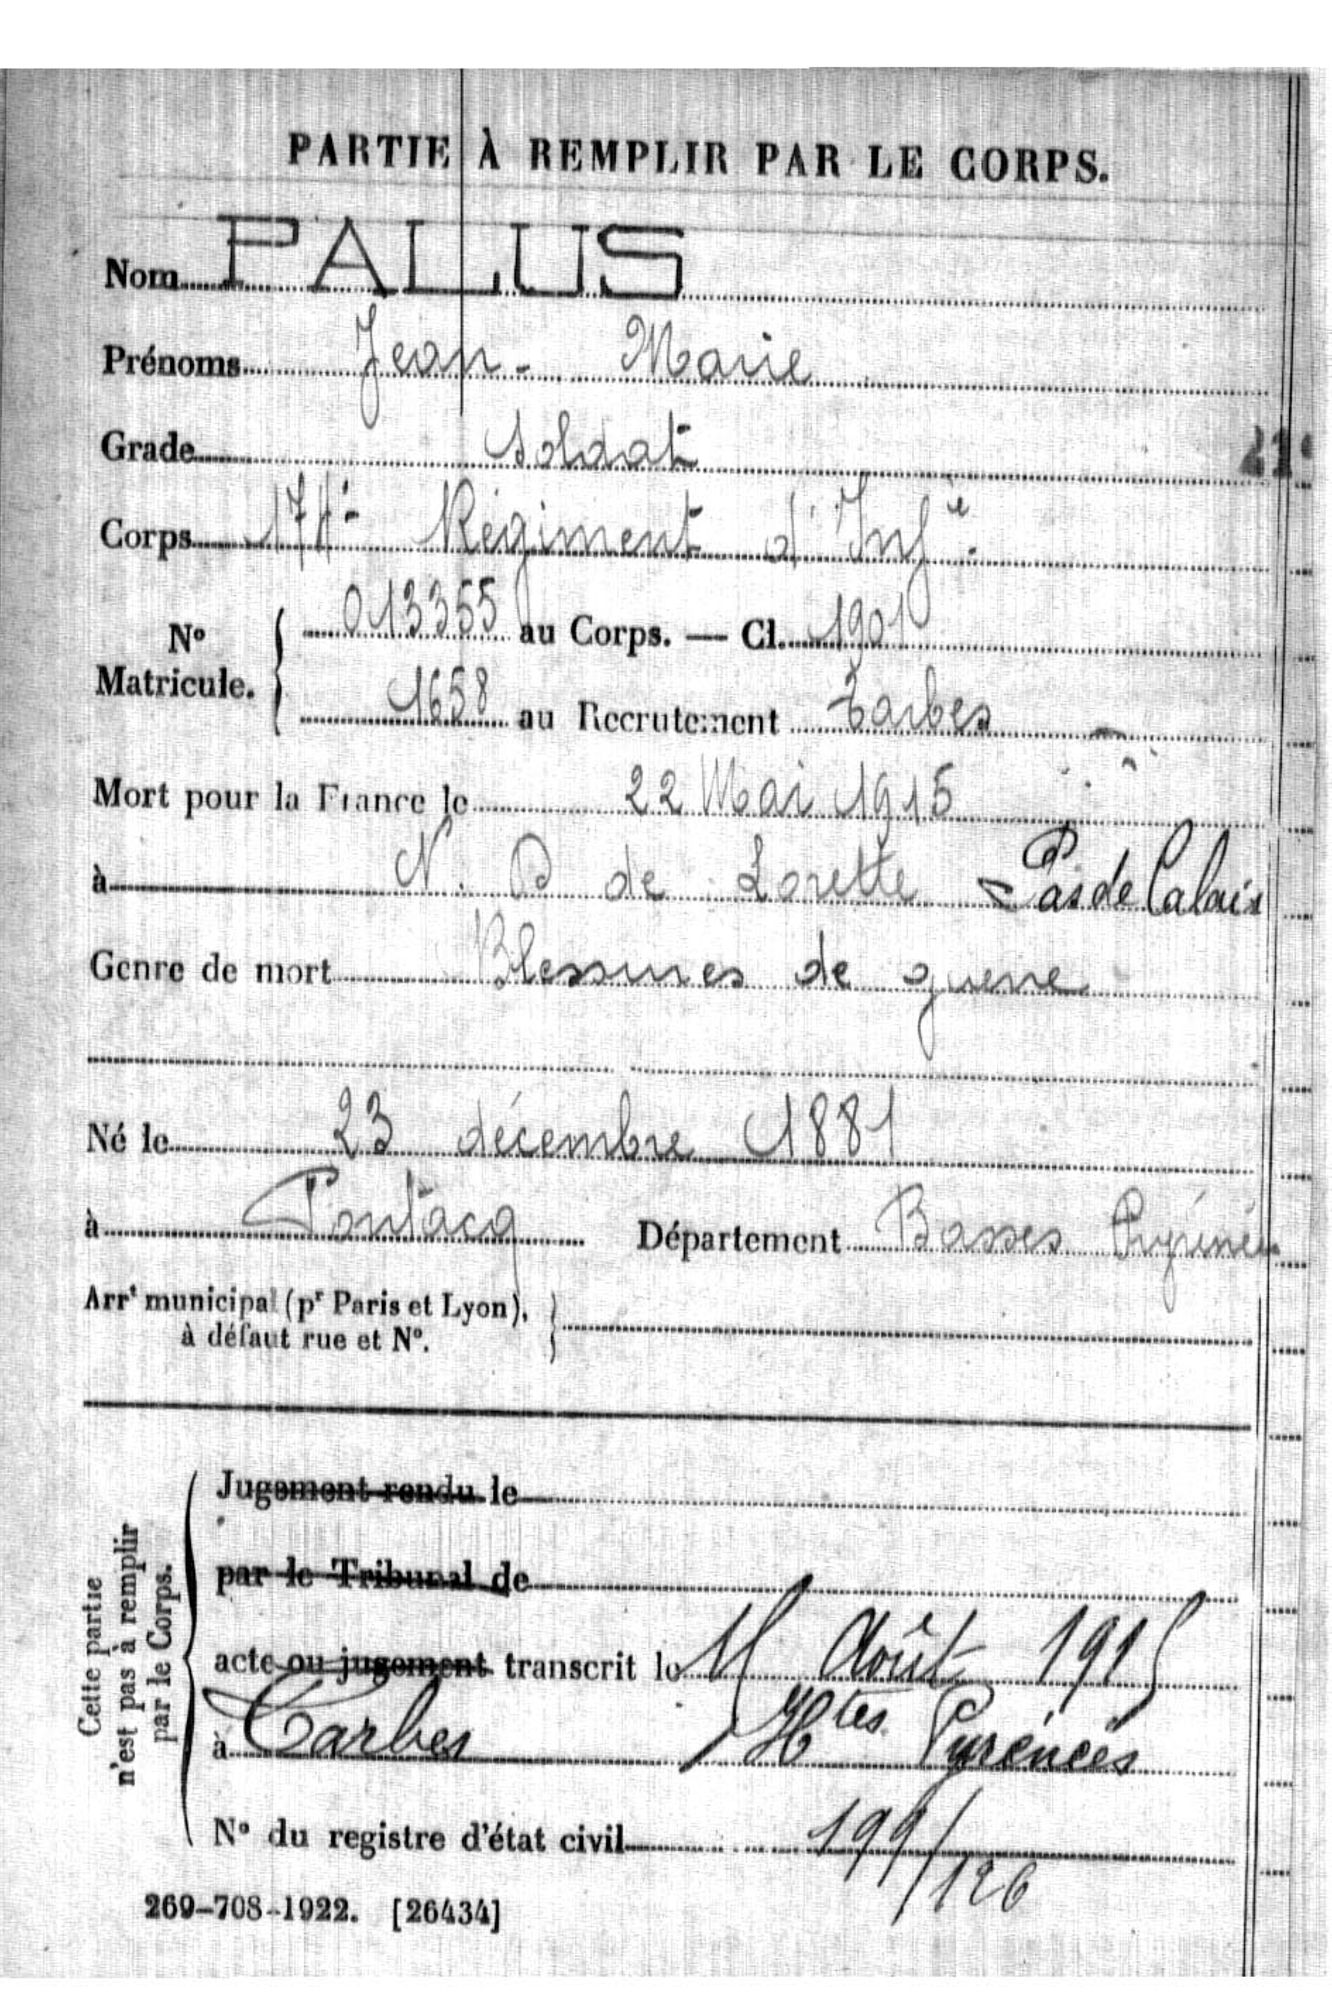 PARTIE À REMPLIR PAR LE CORPS.
Nom PALUS
Prénoms Jean-Marie
Grade Soldat
21
Corps Régiment d'Infie.
013355 au Corps. — Cl. 1901
N° Matricule.
1658 au Recrutement Tarbes
Mort pour la France le 22 Mai 1915
à N. D de Lorette Pas de Calais
Genre de mort Blessures de guerre
Né le 23 décembre 1881
à Pontacq Département Basses Pyrénées
Arrt municipal (pr Paris et Lyon), à défaut rue et N°.
Jugement rendu le
par le Tribunal de
acte ou jugement transcrit le 11 Août 1915
à Tarbes Htes Pyrénées
N° du registre d'état civil 199/126
Cette partie n'est pas à remplir par le Corps.
269-708-1922. [26434]